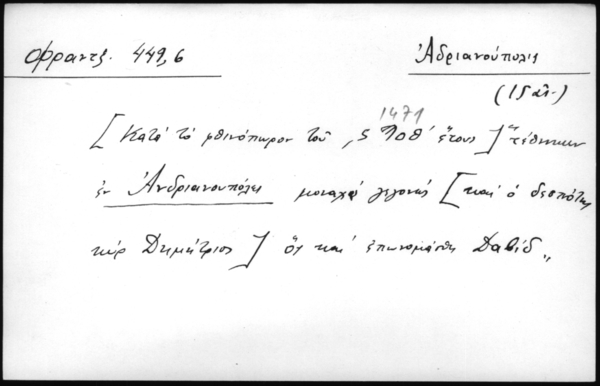 Φραντζ. 449,6
Ἀδριανούπολις
(15 αἰ.)
1471
[Κατὰ τὸ φθινόπωρον τοῦ ,ϛ ϡοθ΄ ἔτους] τέθνηκεν
ἐν Ἀνδριανουπόλει μοναχὸς γεγονώς [καὶ ὁ δεσπότης
κὺρ Δημήτριος] ὃς καὶ ἐπωνομάσθη Δαβίδ „